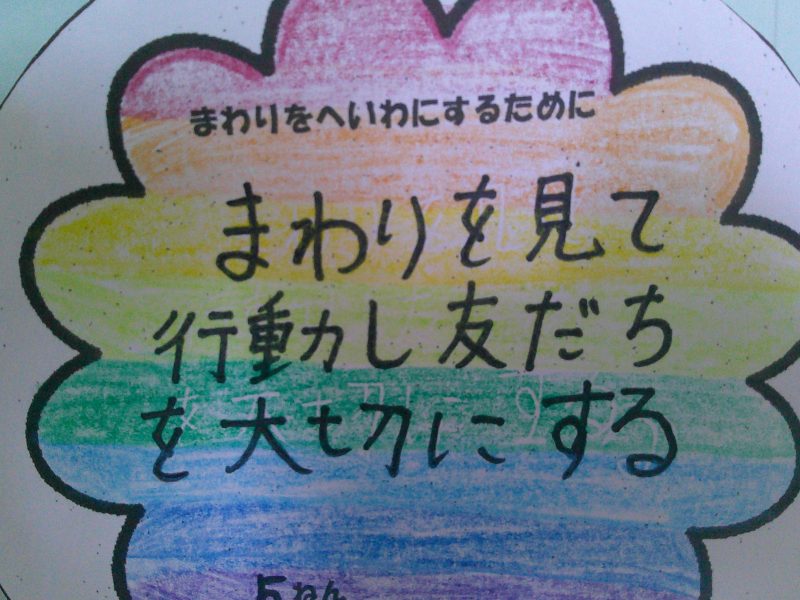 まわりをへいわにするために
まわりを見て
行動し友だち
を大切にする
5ねん